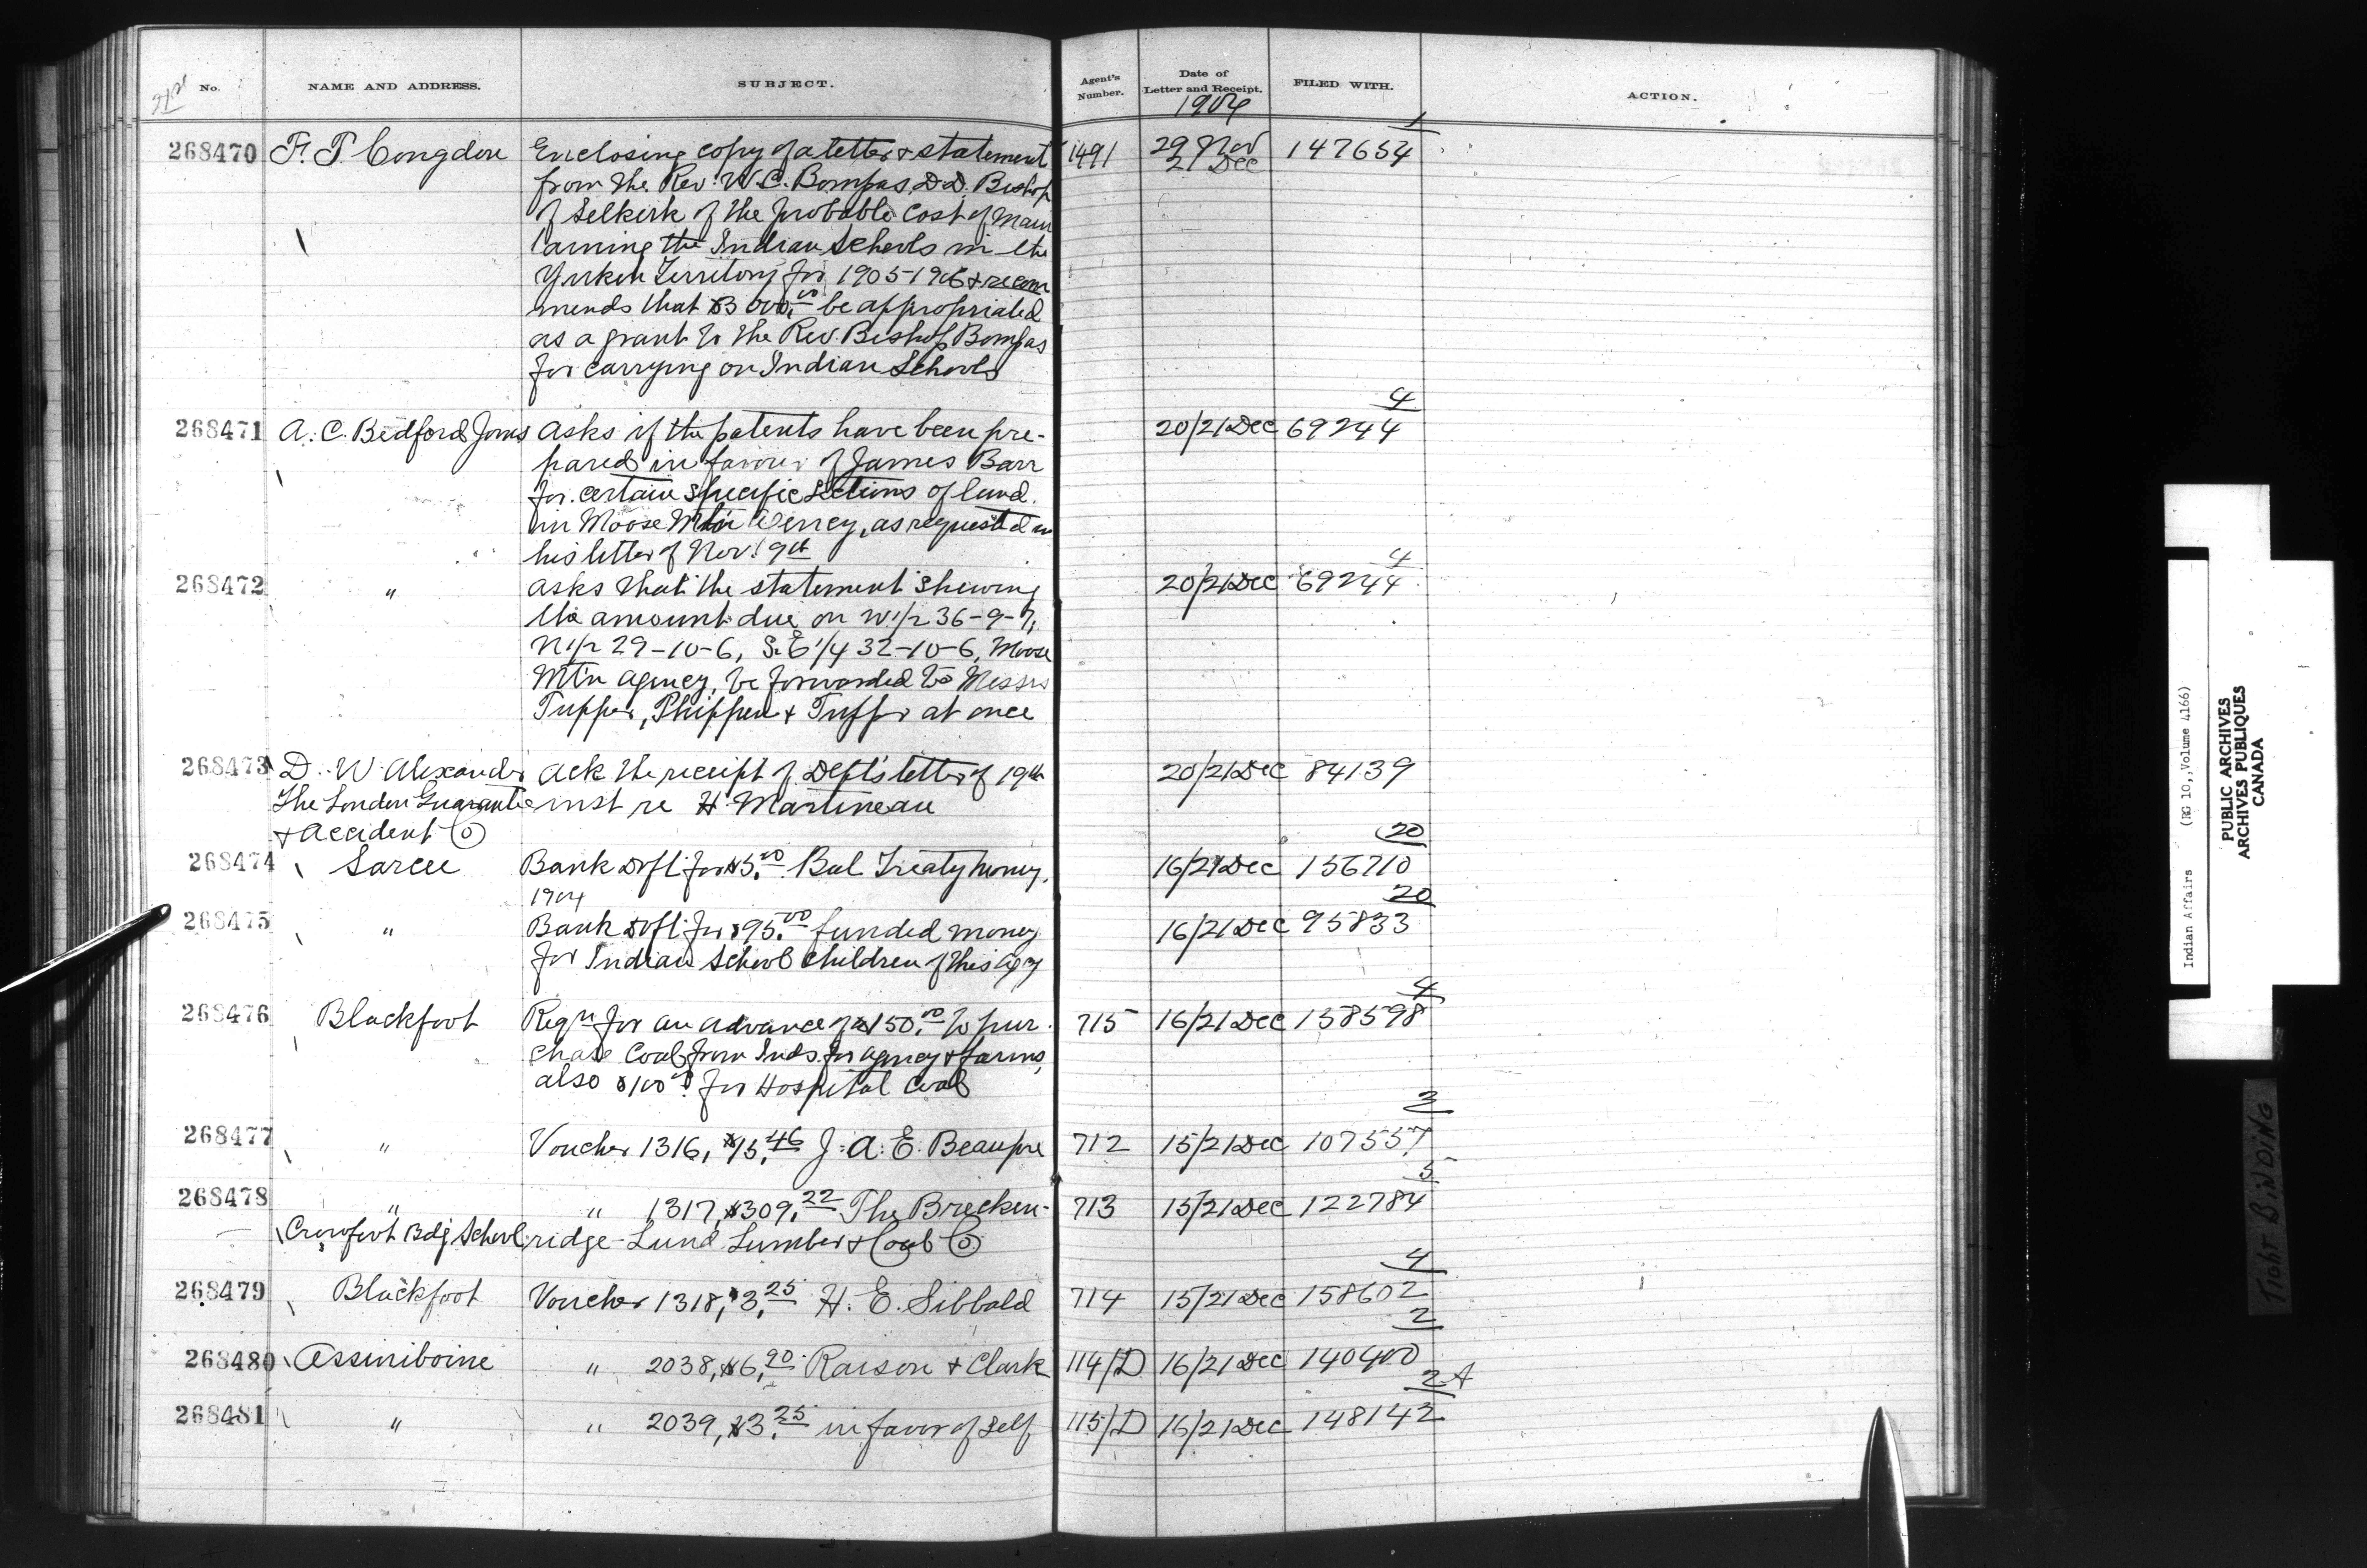 21st No. NAME AND ADDRESS. SUBJECT. Agent's Number. Date of Letter and Receipt. FILED WITH. ACTION.
1904
1
268470 F. T. Congdon Enclosing copy of a letter & statement 1491 29 Nov 147654
21 Dec
from the Rev. W. C. Bompas, D.D. Bishop
of Selkirk of the probable cost of main
taining the Indian Schools in the
Yukon Territory for 1905-1906 & recom
mends that $3000.00 be appropriated
as a grant to the Rev. Bishop Bompas
for carrying on Indian Schools
4
268471 A. C. Bedford Jones Asks if the patents have been pre- 20/21 Dec 69244
pared in favour of James Barr
for certain specific sections of land
in Moose Mtn Agency, as requested in
his letter of Nov. 9th
4
268472 " Asks that the statement shewing 20/21 Dec 69244
the amount due on W1/2 36-9-7,
N1/2 29-10-6, S.E 1/4 32-10-6, Moose
Mt'n Agency, be forwarded to Messrs
Tupper, Phippen & Tupper at once
268473 D. W. Alexander Ack the receipt of Dept's letter of 19th 20/21 Dec 84139
The London Guarantee inst re H. Martineau
& Accident Co
20
268474 Sarcee Bank Dft for $5.00 Bal Treaty money 16/21 Dec 156710
1904
20
268475 " Bank Dft for $95.00 funded money 16/21 Dec 95833
for Indian School Children of this Agcy
4
268476 Blackfoot Reqn for an advance of $150.00 to pur 715 16/21 Dec 158598
chase Coal from Inds. for Agency & farms,
also $100.00 for Hospital Coal
3
268477 " Voucher 1316, $15.46 J. A. E. Beaupre 712 15/21 Dec 107557
5
268478 " " 1317, $309.22 The Brecken- 713 15/21 Dec 122784
Crowfoot Bdg School ridge-Lund Lumber & Coal Co
4
268479 Blackfoot Voucher 1318, $3.25 H. E. Sibbald 714 15/21 Dec 158602
2
268480 Assiniboine " 2038, $6.90 Raison & Clark 114/D 16/21 Dec 140400
2A
268481 " " 2039, $3.25 in favor of self 115/D 16/21 Dec 148142
Indian Affairs (RG 10, Volume 4166)
PUBLIC ARCHIVES
ARCHIVES PUBLIQUES
CANADA
TIGHT BINDING